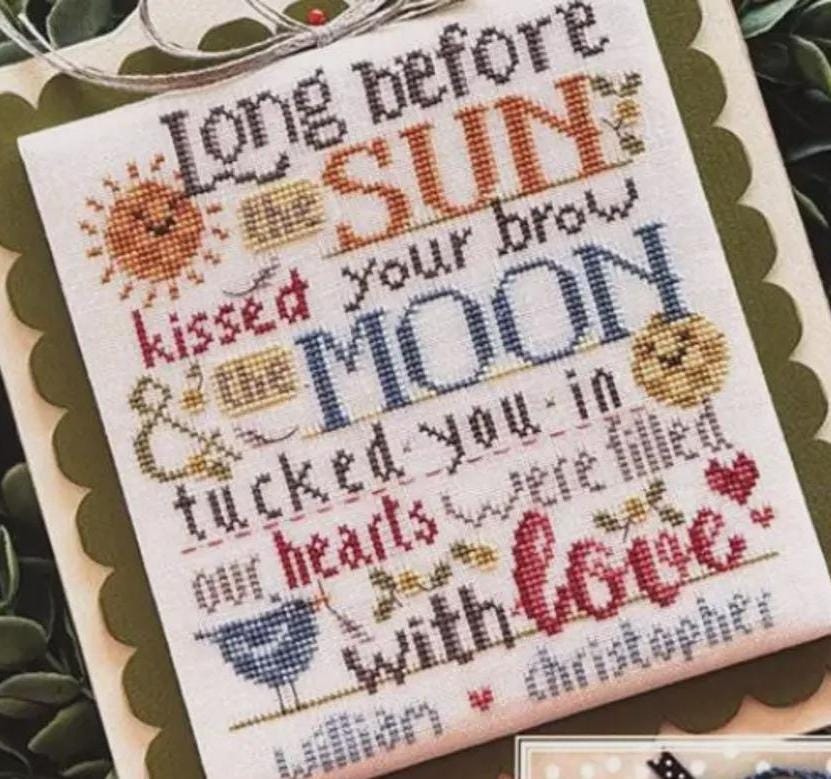 Long before
the SUN
kissed your brow
& the MOON
tucked you in
our hearts were filled
with love
william christopher